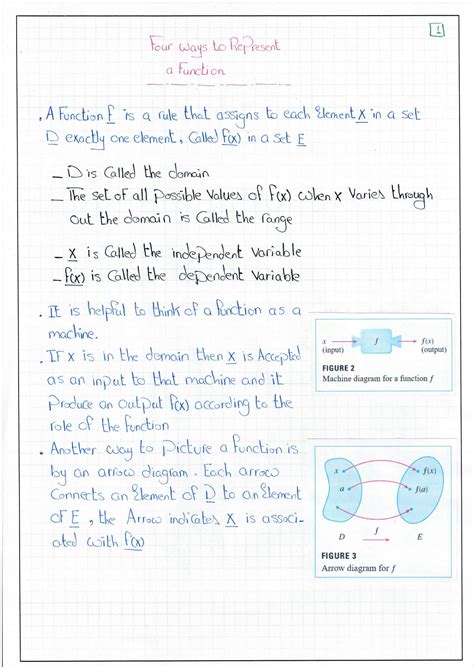 1
Four ways to Represent
a Function
. A Function f is a rule that assigns to each element X in a set
D exactly one element, Called f(x) in a set E
– D is Called the domain
– The set of all possible values of f(x) when x varies through
out the domain is Called the range
– X is Called the independent variable
– f(x) is Called the dependent variable
. It is helpful to think of a function as a
machine.
. IF x is in the domain then x is Accepted
as an input to that machine and it
Produce an output f(x) according to the
role of the function
x
(input)
f
f(x)
(output)
FIGURE 2
Machine diagram for a function f
. Another way to picture a function is
by an arrow diagram. Each arrow
Connects an Element of D to an Element
of E, the Arrow indicates X is associ-
ated with f(x)
x
f(x)
a
f(a)
D
f
E
FIGURE 3
Arrow diagram for f